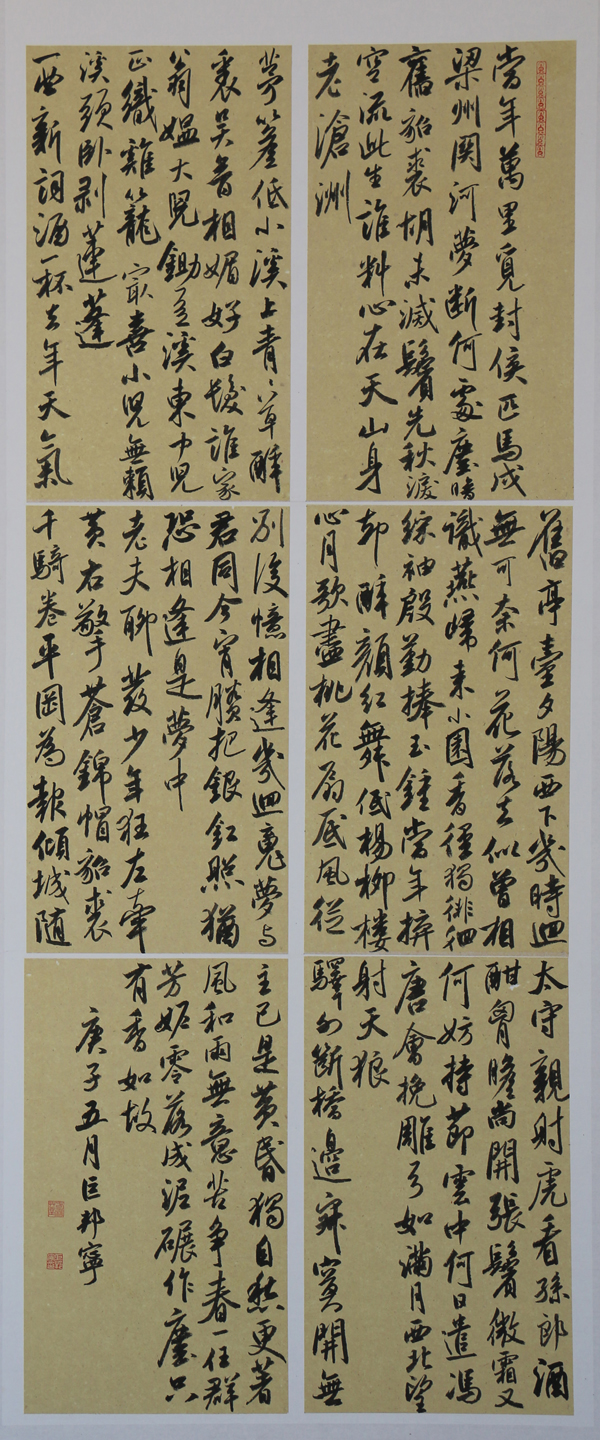 當年萬里覓封侯匹馬戍
梁州関河夢斷何處塵暗
舊貂裘胡未滅鬢先秋淚
空流此生誰料心在天山身
老滄洲
茅簷低小溪上青〻草醉
裏吳音相媚好白髮誰家
翁媼大兒鋤豆溪東中兒
正織雞籠最喜小兒無賴
溪頭臥剝蓮蓬
一曲新詞酒一杯去年天氣
舊亭臺夕陽西下幾時迴
無可奈何花落去似曾相
識燕歸來小園香徑獨徘徊
綵袖殷勤捧玉鍾當年拚
却醉顏紅舞低楊柳樓
心月歌盡桃花扇底風從
別後憶相逢幾迴魂夢与
君同今宵賸把銀釭照猶
恐相逢是夢中
老夫聊發少年狂左牽
黃右擎蒼錦帽貂裘
千騎卷平岡為報傾城隨
太守親射虎看孫郎酒
酣胸膽尚開張鬢微霜又
何妨持節雲中何日遣馮
唐會挽雕弓如滿月西北望
射天狼
驛外斷橋邊寂寞開無
主已是黃昏獨自愁更著
風和雨無意苦爭春一任群
芳妒零落成泥碾作塵只
有香如故
庚子五月巨邦寧